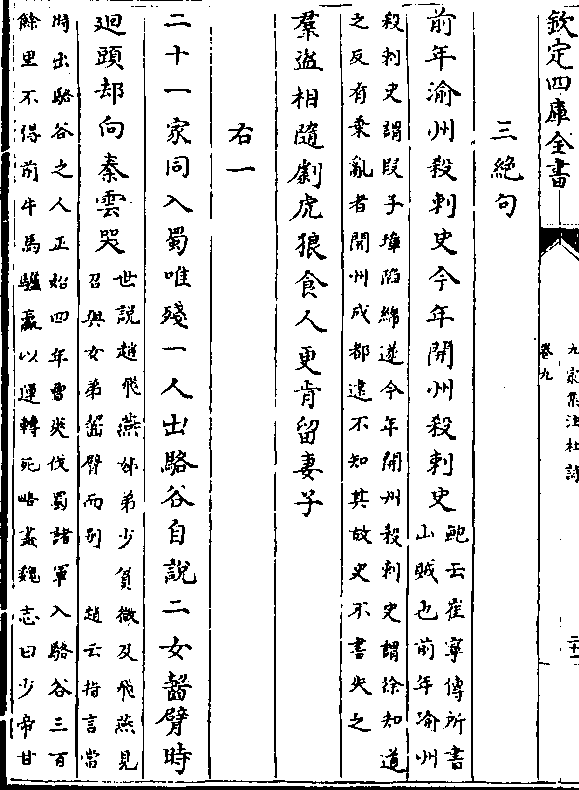 欽定四庫全書
九家集注杜詩
卷九
三絕句
前年渝州殺刺史今年開州殺刺史
鮑云崔寧傳所書
山賊也前年渝州
殺刺史謂段子璋陷綿遂今年開州殺刺史謂徐知道
之反有乘亂者開州成都遠不知其故史不書失之
羣盗相隨劇虎狼食人更肯留妻子
右一
二十一家同入蜀唯殘一人出駱谷自說二女齧臂時
迴頭却向秦雲哭
世說趙飛燕姊弟少貧微及飛燕見
召與女弟齧臂而別 趙云指言當
時出駱谷之人正始四年曹爽伐蜀諸軍入駱谷三百
餘里不得前牛馬驢羸以運轉死略盡魏志曰少帝甘